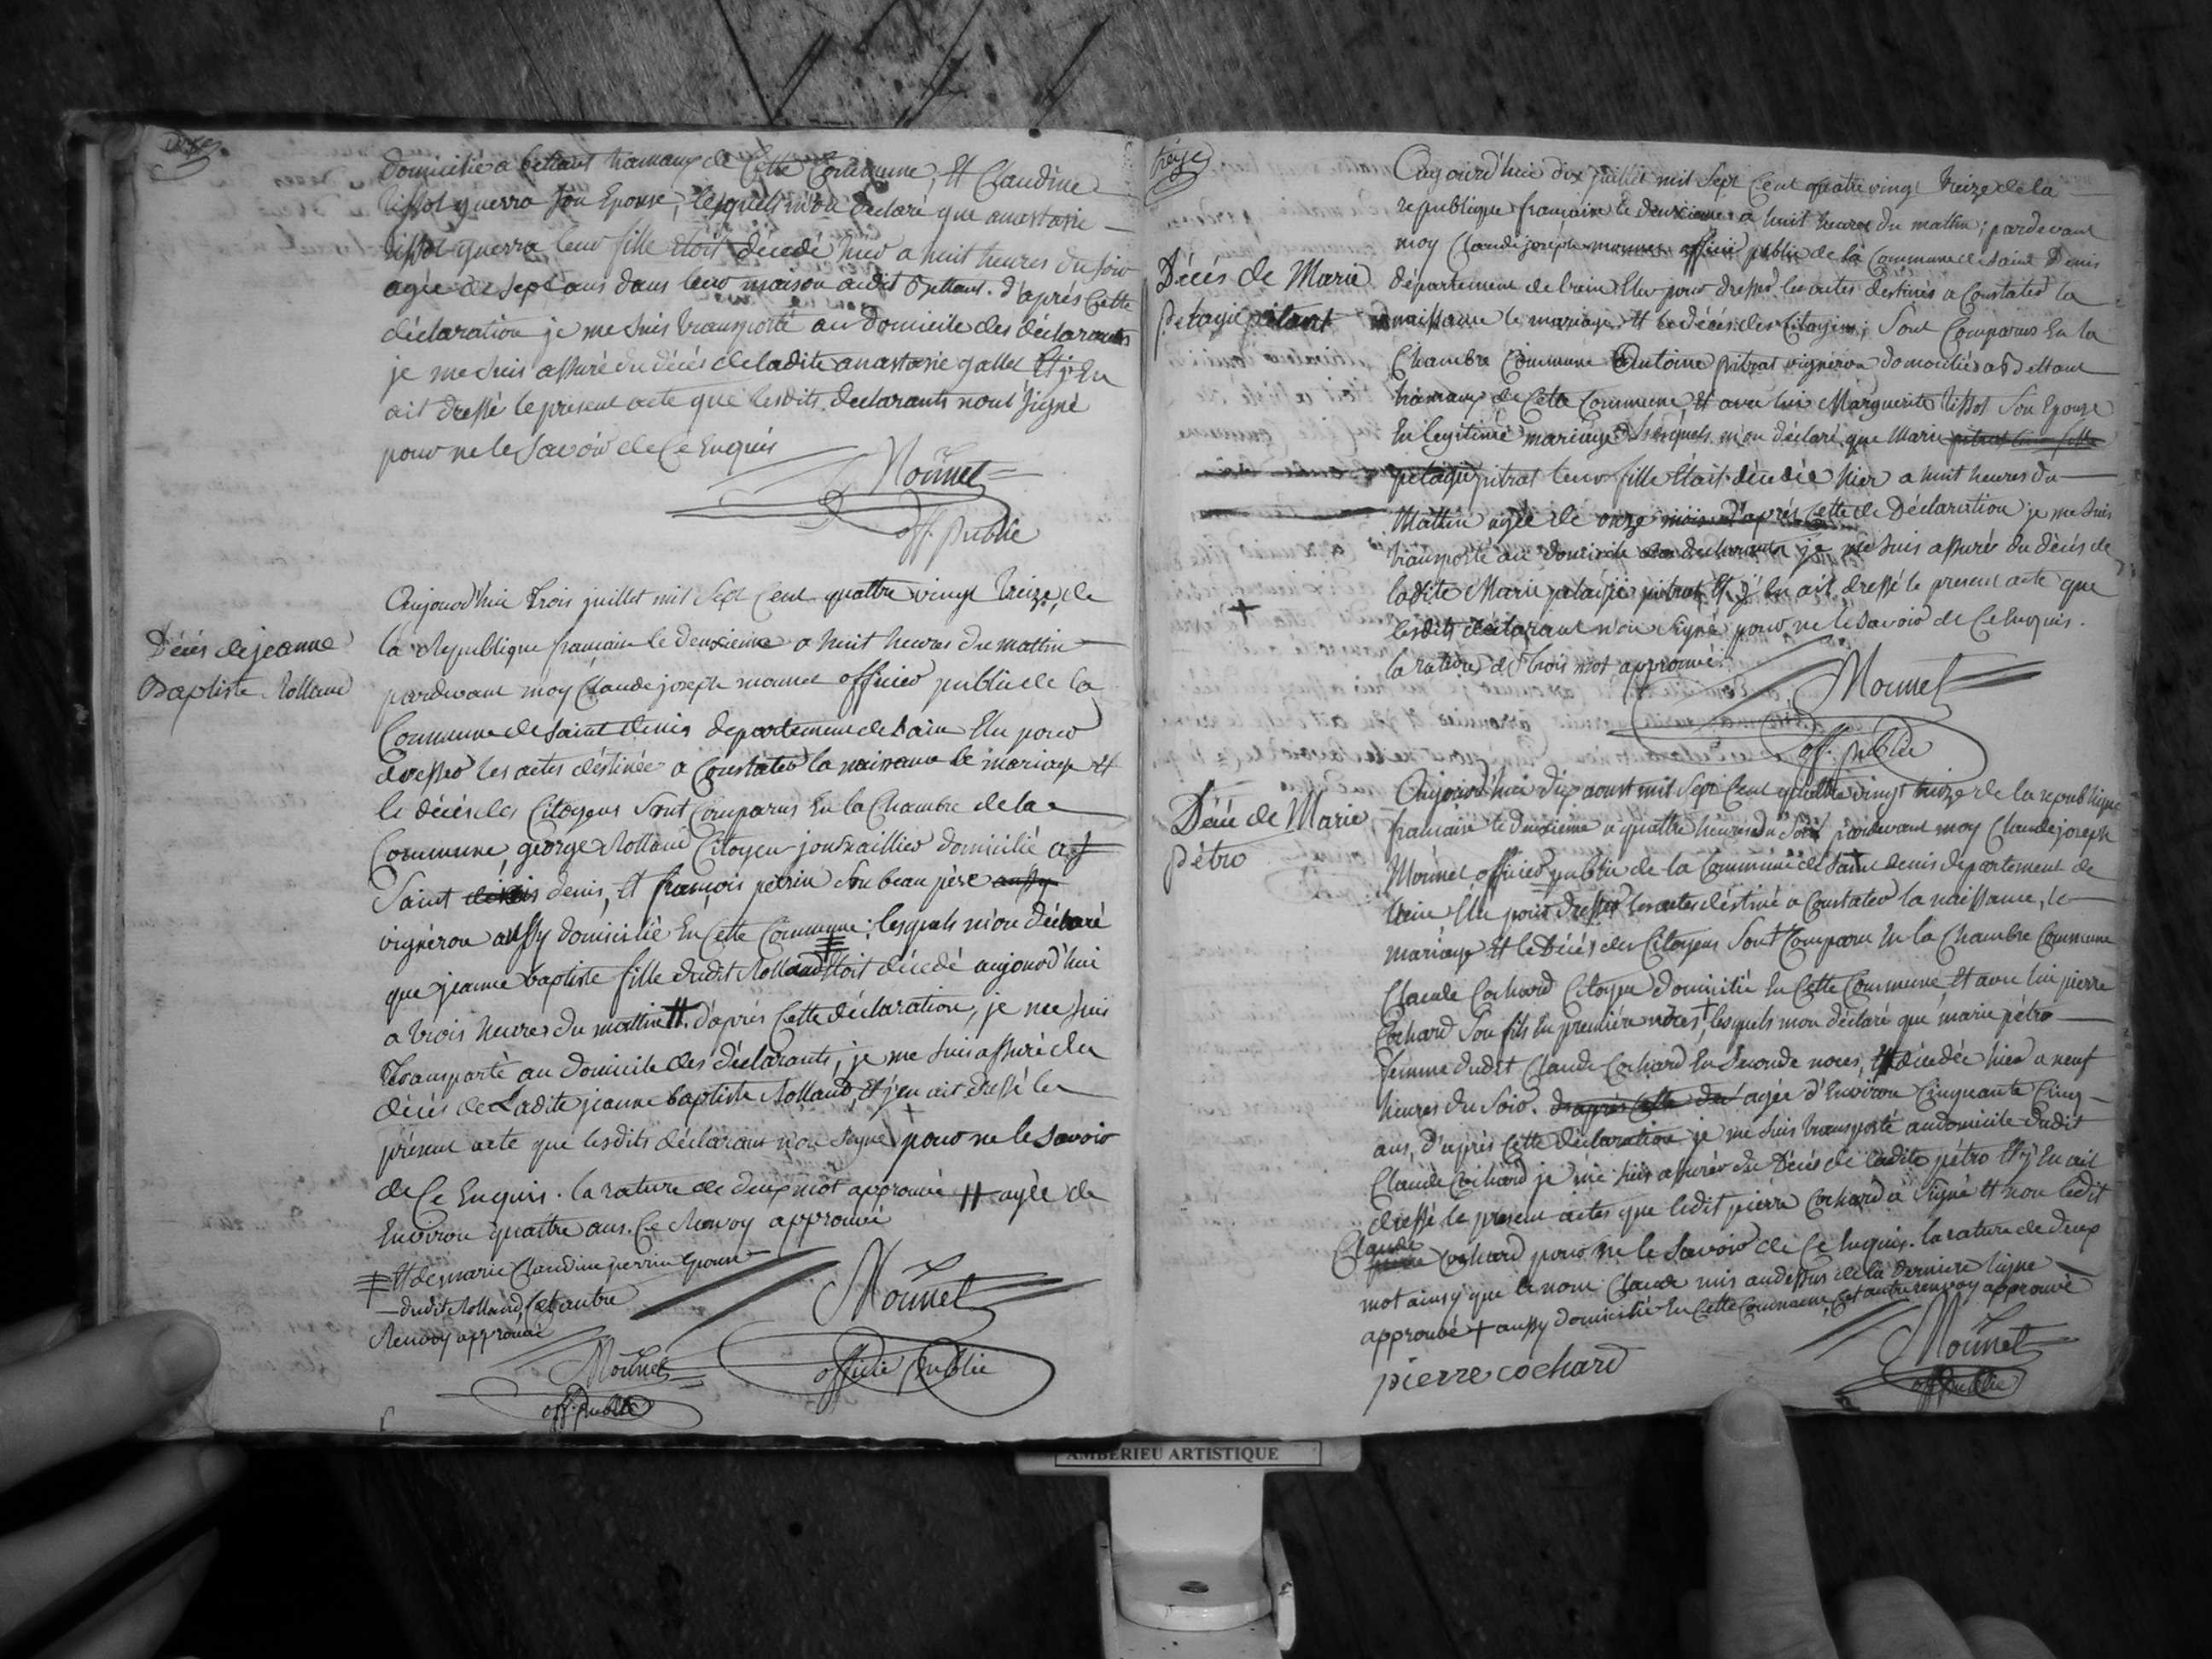 domicilié a bettant hamaux de Cette Commune, Et Claudine
tissot guerra son Epouse, lesquels m'on declaré que anastasie
tissot guerra leur fille étoit décedé hier a huit heures du soir
agée de sept ans dans leur maison audit Bettant. d'après Cette
déclaration je me suis transporté au domicile des déclarants
je me suis assuré du décés de ladite anastasie gallet Et j'En
ait dressé le présent acte que lesdits declarants n'ont signé
pour ne le savoir de Ce Enquis
Mounet
off. public
Aujourd'hui trois juillet mil sept Cent quattre vingt treize, de
la Republique française le deuxieme a huit heures du mattin
Décés de jeanne
Baptiste Rolland
pardevant moy Claude joseph mounet officier public de la
Commune de saint denis departement de l'ain Elu pour
dresser les actes déstinée a Constater la naissance le mariage Et
le décés des Citoyens sont Comparus En la Chambre de la
Commune, george Rolland Citoyen journaillier domicilié a
Saint denis, Et françois périn son beau père aussy
vignéron aussy domicilié En Cette Commune; lesquels m'on déclaré
que jeanne baptiste fille dudit Rolland étoit décedé aujourd'hui
a trois heures du mattin # d'après Cette déclaration, je me suis
transporté au domicile des déclarants, je me suis assuré du
décés de Ladite jeanne baptiste Rolland, Et j'en ait dressé le
présent acte que lesdits déclarant n'on signé pour ne le savoir
de Ce Enquis. la rature de deux mot approuvé # agée de
Environ quattre ans. Ce Renvoy approuvé
‡ Et de marie Claudine perrin Epouse
dudit Rolland, Cet autre
Renvoy approuvé
Mounet
off. public
Mounet
officié public
treize
Aujourd'hui dix juillet mil sept Cent quatre vingt treize de la
republique française le deuxieme a huit heures du mattin; pardevant
moy Claude joseph mounet officié public de la Commune de saint Denis
Décés de Marie
pelagie pitrat
département de l'ain Elu pour dresser les actes destinés a Constater la
naissance le mariage Et le décés des Citoyens; sont Comparus En la
Chambre Commune Antoine pitrat vignéron domicilié a Bettant
hamaux de Cette Commune, Et avec lui Marguerite tissot son Epouse
En legitime mariage, lesquels m'on déclaré que Marie pitrat leur fille
pelagie pitrat leur fille Etait décédée hier a huit heures du
mattin agée de onze mois. D'aprés Cette de Déclaration je me suis
transporté au domicile des declarants je me suis assurér du décés de
ladite Marie pelagie pitrat Et j'En ait dressé le present acte que
lesdits déclarant n'on signé pour ne le savoir de Ce Enquis.
la rature de trois mot approuvé.
Mounet
off. public
Aujourd'hui dix aoust mil sept Cent quattre vingt treize de la republique
Décé de Marie
pétro
française le deuxieme a quattre heures du soir pardevant moy Claude joseph
Mounet officier public de la Commune de Saint denis departement de
l'ain, Elu pour dresser les actes déstiné a Constater la naissance, le
mariage Et le Décés des Citoyens Sont Comparu En la Chambre Commune
Claude Cochard Citoyen domicilié En Cette Commune Et avec lui pierre
Cochard son fils En premiére nôces + lesquels m'on déclaré que marie pétro
femme dudit Claude Cochard En seconde noces, Et décedée hier a neuf
heures du soir. d'aprés Cette dé agée d'Environ Cinquante Cinq
ans, D'aprés Cette déclaration je me suis transporté au domicile dudit
Claude Cochard je me suis assurér du Décés de ladite pétro Et j'En ait
dressé le present actes que ledit pierre Cochard a signé Et non ledit
Claude
pierre Cochard pour ne le savoir de Ce Enquis. la rature de deux
mot ainsy que le nom Claude mis audessus de la derniere ligne
approuvé + aussy domicilié En Cette Commune, Cet autre renvoy approuvé
pierre cochard
Mounet
off. public
AMBERIEU ARTISTIQUE